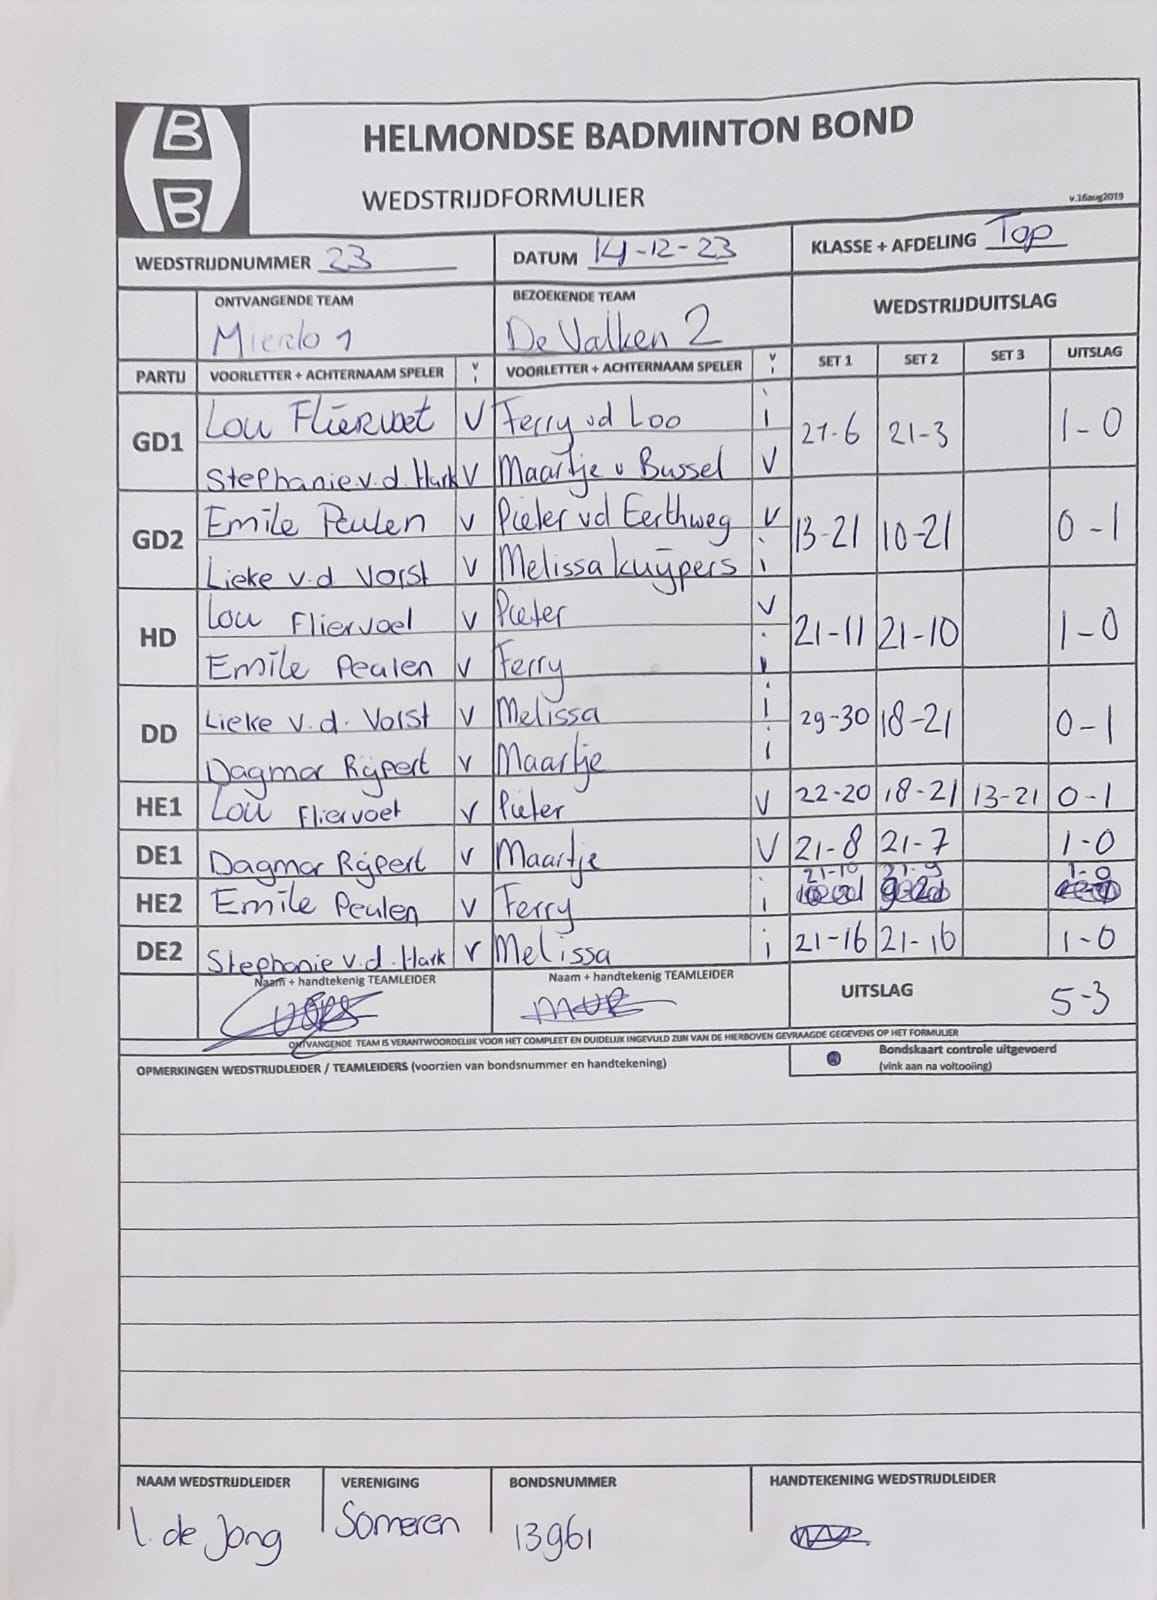 B
B
HELMONDSE BADMINTON BOND
WEDSTRIJDFORMULIER
v.16aug2019
WEDSTRIJDNUMMER 23 DATUM 14-12-23 KLASSE + AFDELING Top
ONTVANGENDE TEAM BEZOEKENDE TEAM WEDSTRIJDUITSLAG
Mierlo 1 De Valken 2
PARTIJ VOORLETTER + ACHTERNAAM SPELER V I VOORLETTER + ACHTERNAAM SPELER V I SET 1 SET 2 SET 3 UITSLAG
GD1 Lou Fliervoet V Ferry vd Loo i 21-6 21-3 1-0
Stephanie v.d. Hark V Maartje v Bussel V
GD2 Emile Peulen V Pieter vd Eerthweg V 13-21 10-21 0-1
Lieke v.d Vorst V Melissa Kuijpers i
HD Lou Fliervoet V Pieter V 21-11 21-10 1-0
Emile Peulen V Ferry i
DD Lieke v.d. Vorst V Melissa i 29-30 18-21 0-1
Dagmar Rijpert V Maartje i
HE1 Lou Fliervoet V Pieter V 22-20 18-21 13-21 0-1
DE1 Dagmar Rijpert V Maartje V 21-8 21-7 1-0
HE2 Emile Peulen V Ferry i 21-10 21-9 1-0
DE2 Stephanie v.d. Hark V Melissa i 21-16 21-16 1-0
Naam + handtekenig TEAMLEIDER Naam + handtekenig TEAMLEIDER UITSLAG 5-3
ONTVANGENDE TEAM IS VERANTWOORDELIJK VOOR HET COMPLEET EN DUIDELIJK INGEVULD ZIJN VAN DE HIERBOVEN GEVRAAGDE GEGEVENS OP HET FORMULIER
OPMERKINGEN WEDSTRIJDLEIDER / TEAMLEIDERS (voorzien van bondsnummer en handtekening) Bondskaart controle uitgevoerd
(vink aan na voltooiing)
NAAM WEDSTRIJDLEIDER VERENIGING BONDSNUMMER HANDTEKENING WEDSTRIJDLEIDER
l. de Jong Someren 13961